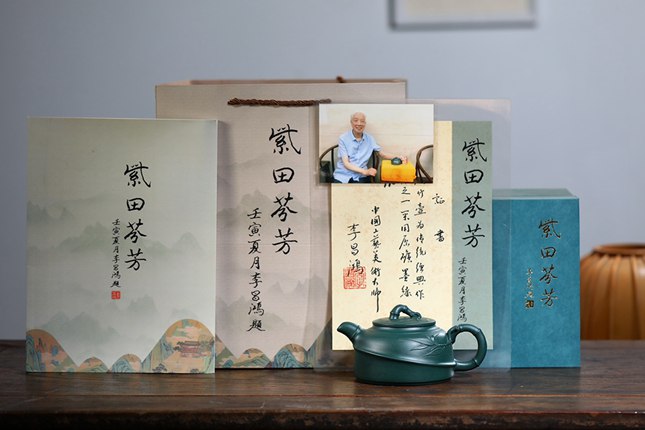 紫田芬芳
壬寅夏月李昌鸿题
紫田芬芳
壬寅夏月李昌鸿题
紫田芬芳
壬寅夏月李昌鸿题
证书
竹壶为传统经典作
之一采用原矿墨绿
中国工艺美术大师
李昌鸿
紫田芬芳